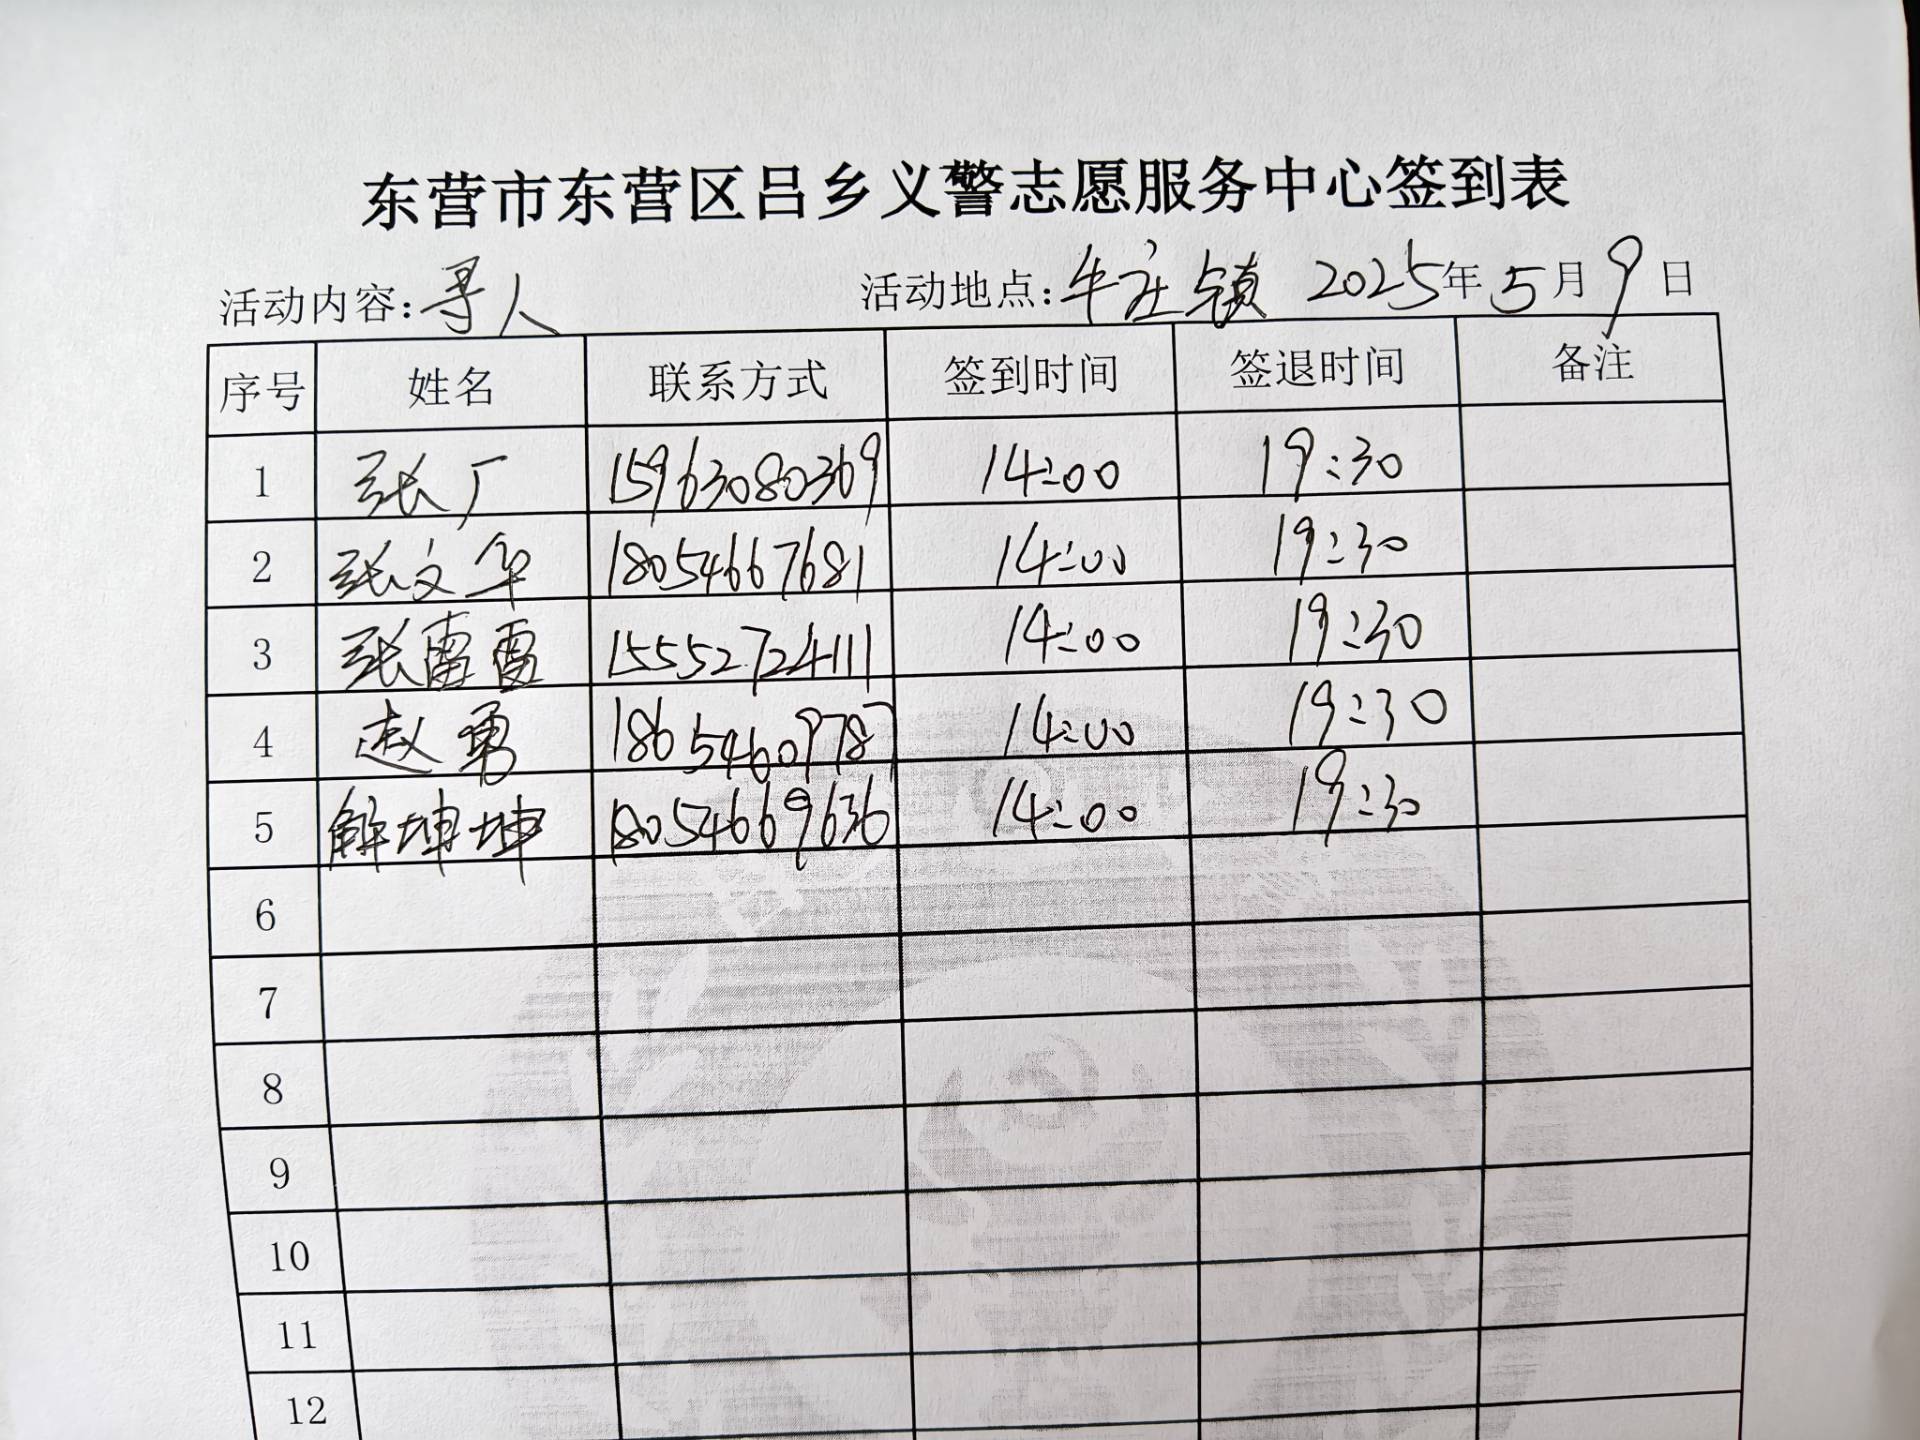 东营市东营区吕乡义警志愿服务中心签到表
活动内容:寻人 活动地点:牛庄镇 2025年5月9日
序号 姓名 联系方式 签到时间 签退时间 备注
1 张广 15963080369 14:00 19:30
2 张文华 18054667681 14:00 19:30
3 张雷雷 15552724111 14:00 19:30
4 赵勇 18654609787 14:00 19:30
5 解坤坤 18054669636 14:00 19:30
6
7
8
9
10
11
12